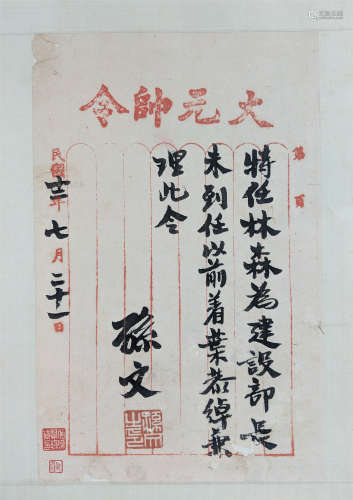 大元帥令
第 頁
特任林森為建設部長
未到任以前着葉恭綽兼
理此令
孫文
民國十三年七月二十一日